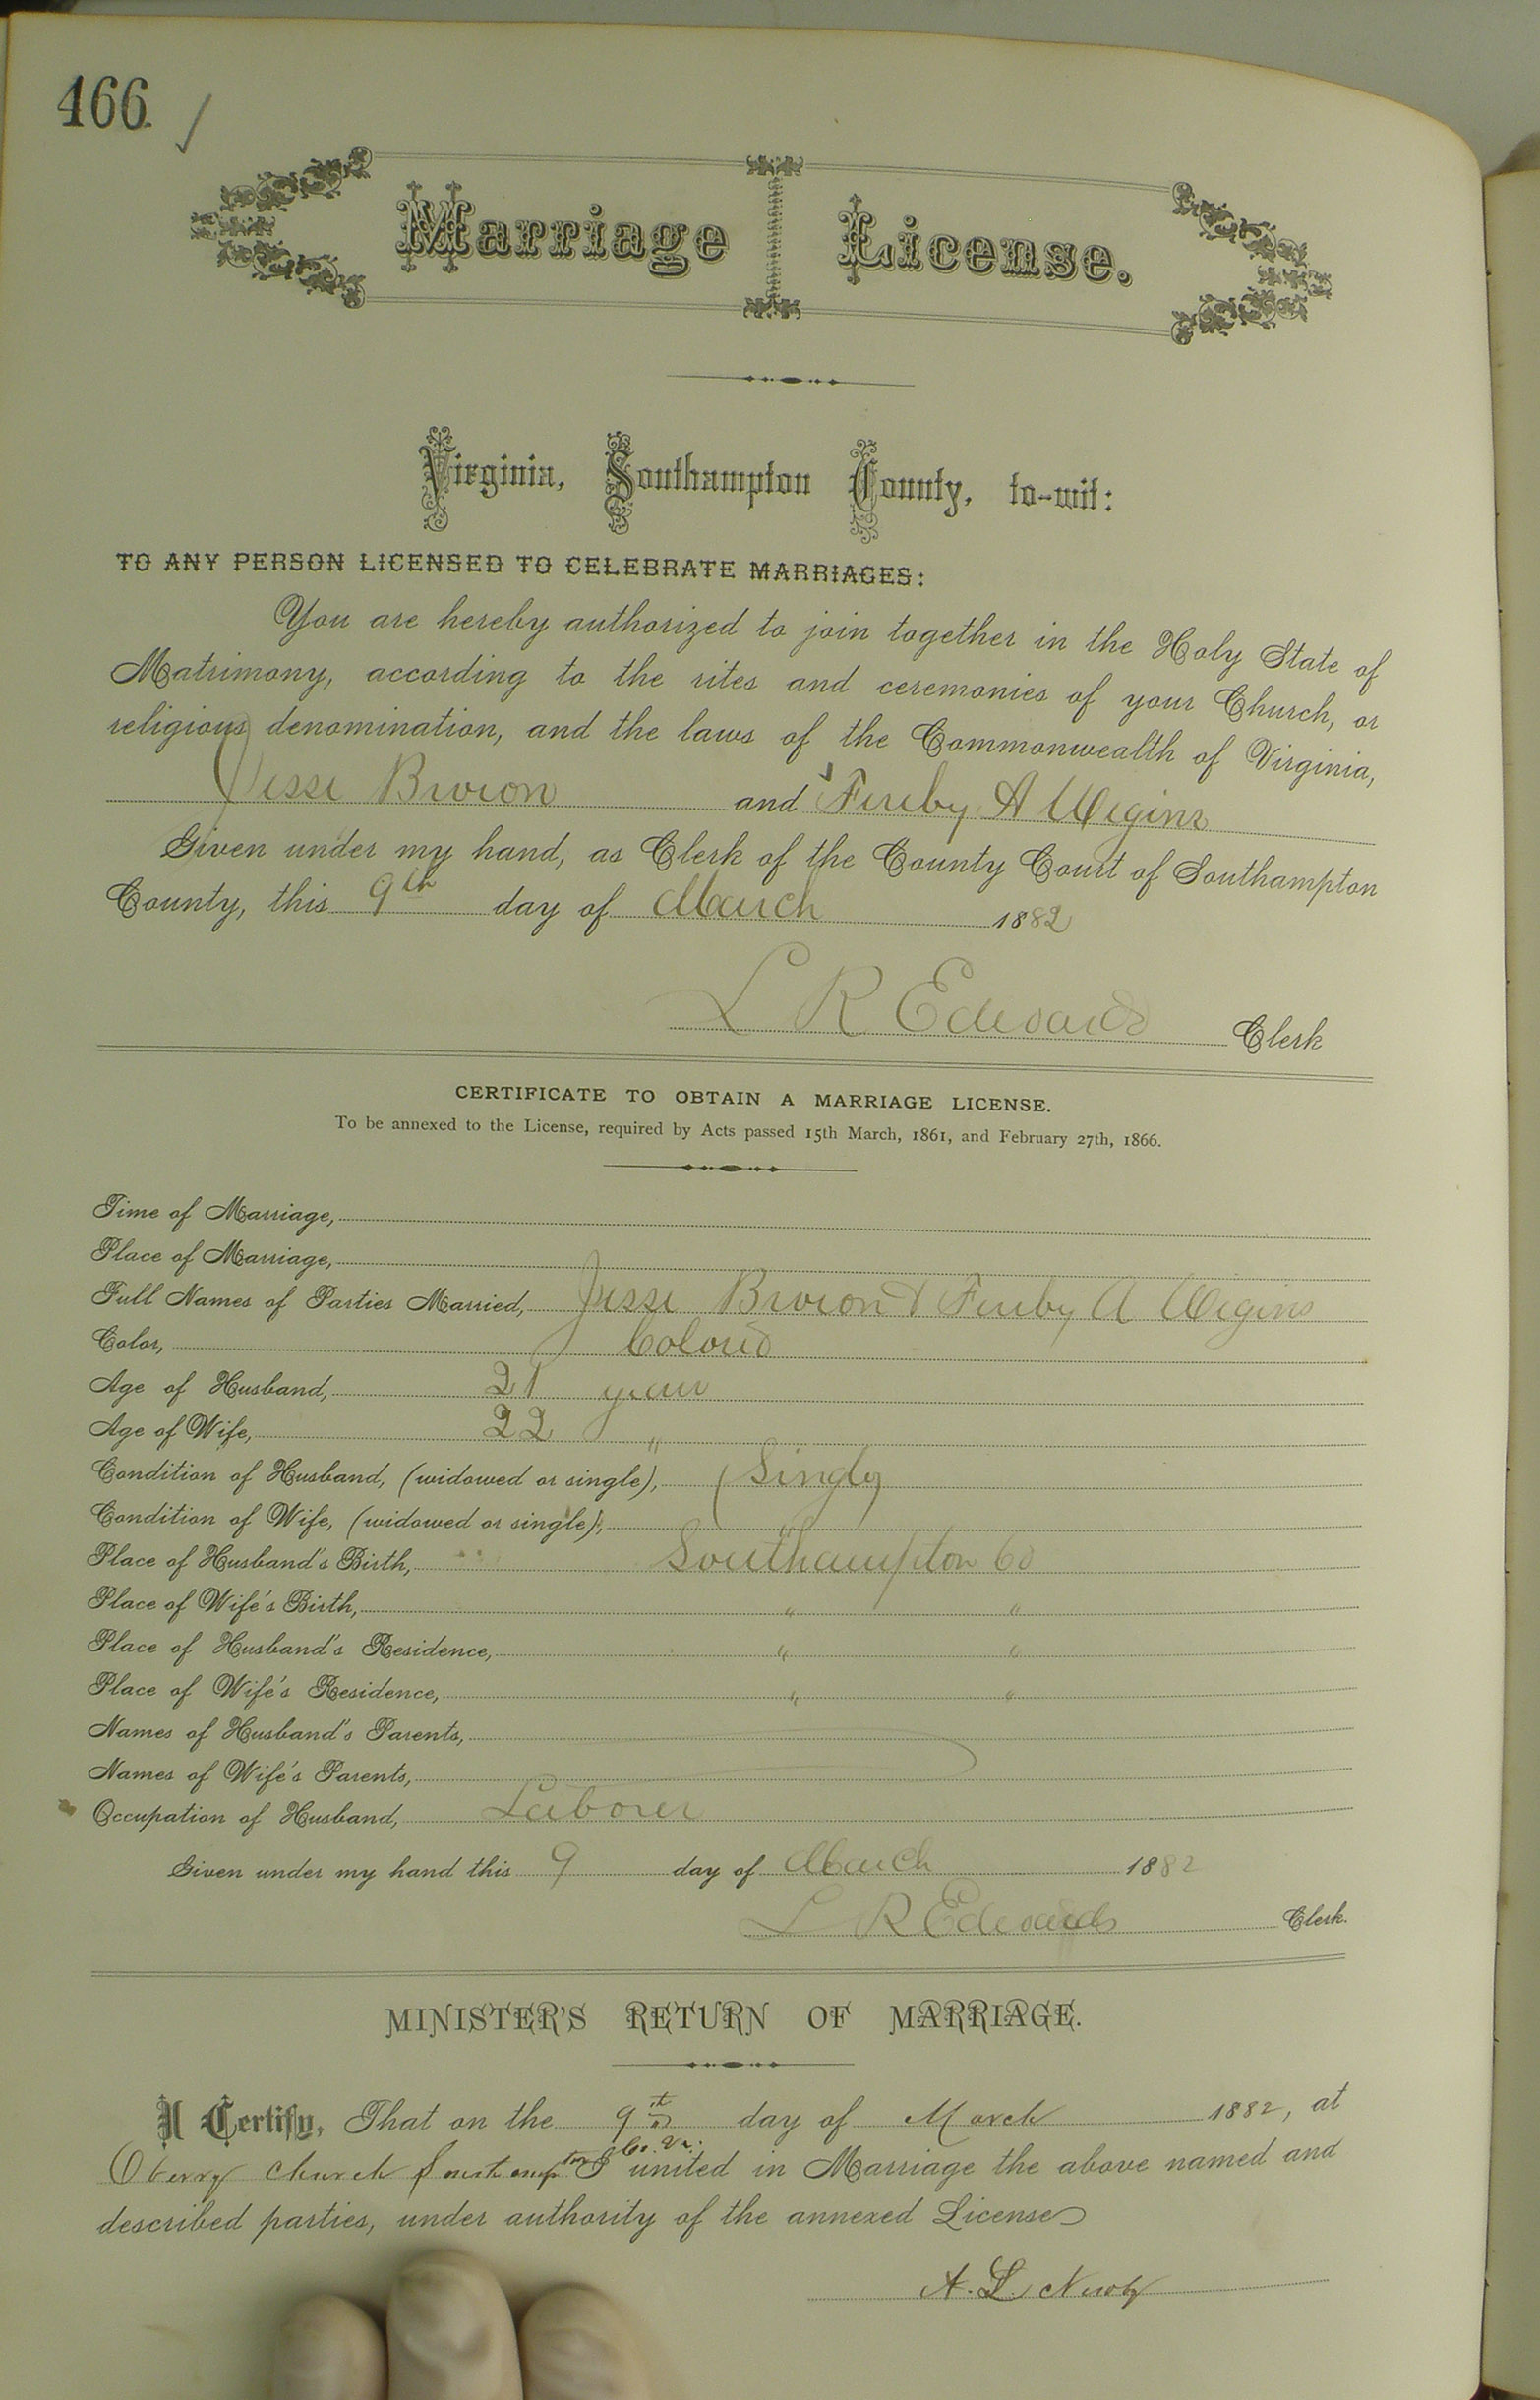 466.
Marriage License.
Virginia, Southampton County, to-wit:
TO ANY PERSON LICENSED TO CELEBRATE MARRIAGES:
You are hereby authorized to join together in the Holy State of
Matrimony, according to the rites and ceremonies of your Church, or
religious denomination, and the laws of the Commonwealth of Virginia,
Jesse Brown and Fereby A Wigins
Given under my hand, as Clerk of the County Court of Southampton
County, this 9th day of March 1882
L R Edwards Clerk
CERTIFICATE TO OBTAIN A MARRIAGE LICENSE.
To be annexed to the License, required by Acts passed 15th March, 1861, and February 27th, 1866.
Time of Marriage,
Place of Marriage,
Full Names of Parties Married, Jesse Brown & Fereby A Wigins
Color, Colored
Age of Husband, 21 years
Age of Wife, 22 "
Condition of Husband, (widowed or single), (Single)
Condition of Wife, (widowed or single), "
Place of Husband's Birth, Southampton Co
Place of Wife's Birth, " "
Place of Husband's Residence, " "
Place of Wife's Residence, " "
Names of Husband's Parents,
Names of Wife's Parents,
Occupation of Husband, Laborer
Given under my hand this 9 day of March 1882
L R Edwards Clerk.
MINISTER'S RETURN OF MARRIAGE.
I Certify, That on the 9th day of March 1882, at
Oberry Church Southampton Co. Va. I united in Marriage the above named and
described parties, under authority of the annexed License
A. L. Newby